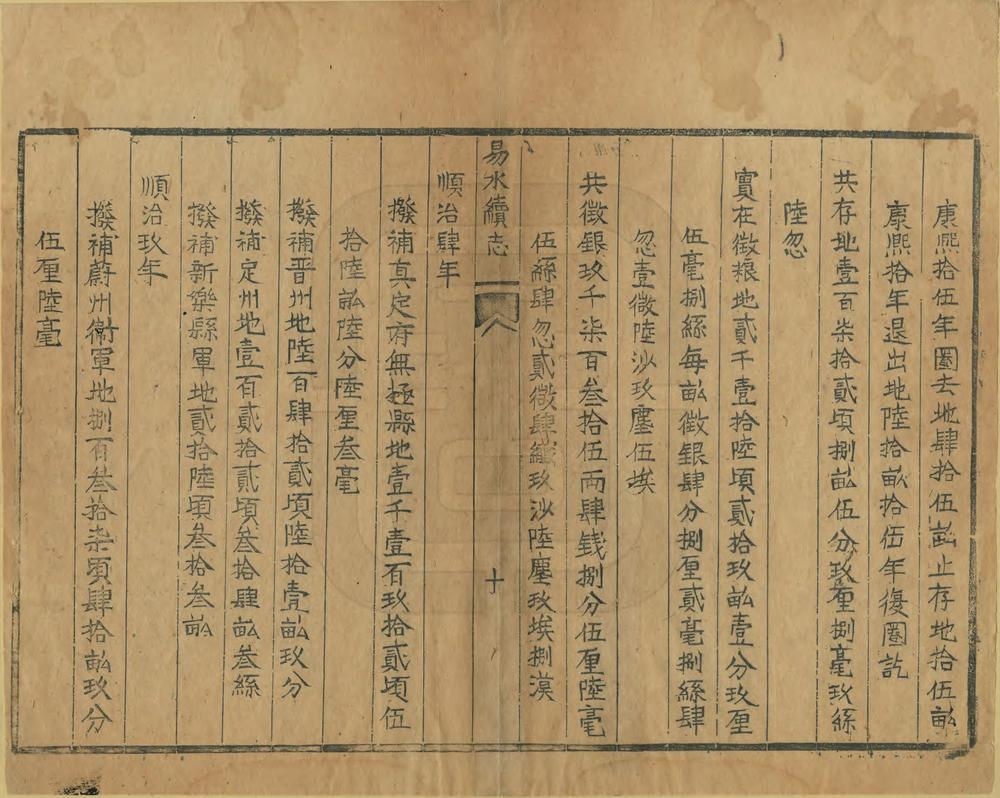 康熙拾伍年圈去地肆拾伍畝止存地拾伍畝
康熙拾年退出地陸拾畝拾伍年復圈訖
共存地壹百柒拾貳頃捌畝伍分玖厘捌毫玖絲
陸忽
實在徵粮地貳千壹拾陸頃貳拾玖畝壹分玖厘
伍毫捌絲每畝徵銀肆分捌厘貳毫捌絲肆
忽壹微陸沙玖塵伍埃
共徵銀玖千柒百叁拾伍兩肆錢捌分伍厘陸毫
伍絲肆忽貳微肆纖玖沙陸塵玖埃捌漠
易水續志
十
順治肆年
撥補真定府無極縣地壹千壹百玖拾貳頃伍
拾陸畝陸分陸厘叁毫
撥補晋州地陸百肆拾貳頃陸拾壹畝玖分
撥補定州地壹百貳拾貳頃叁拾肆畝叁絲
撥補新樂縣軍地貳拾陸頃叁拾叁畝
順治玖年
撥補蔚州衞軍地捌百叁拾柒頃肆拾畝玖分
伍厘陸毫